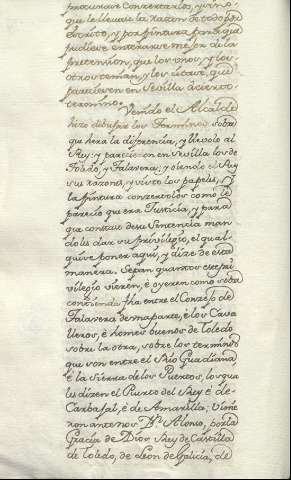 procurase Conzertarlos, y sino
que le llevase la razon de todo por
escrito, y por pintura para que
pudiese enterarse mejor de la
pretension, que los unos, y los
otros tenian, y les citase, que
pareciesen en Sevilla á cierto
termino. Venido el Alcalde
hizo dibujar los Terminos sobre
que hera la diferencia, y llevolo al
Rey: y parecieron en Sevilla los de
Toledo, y Talavera; y oiendo el Rey
sus razones, y visto los papeles, y
la pintura conzertolos como le
parecio que era Justicia, y para
que constase desu Sentencia man
doles dar su privilegio, el qual
quise poner aqui, y dize de esta
manera. Sepan quantos este pri
vilegio vieren, é oyeren como sobre
contienda fha entre el Conzejo de
Talavera de una parte, é los Cava
lleros, é homes buenos de Toledo
sobre la otra, sobre los terminos
que son entre el Rio Guadiana
é la Sierra de los Puertos, los qua
lu dizen el Puerto del Rey é de
Carbajal, é de Amarilla; Vinie
ron antenos Dn. Alonso, por la
Gracia de Dios Rey de Castilla
de Toledo, de Leon de Galicia, de